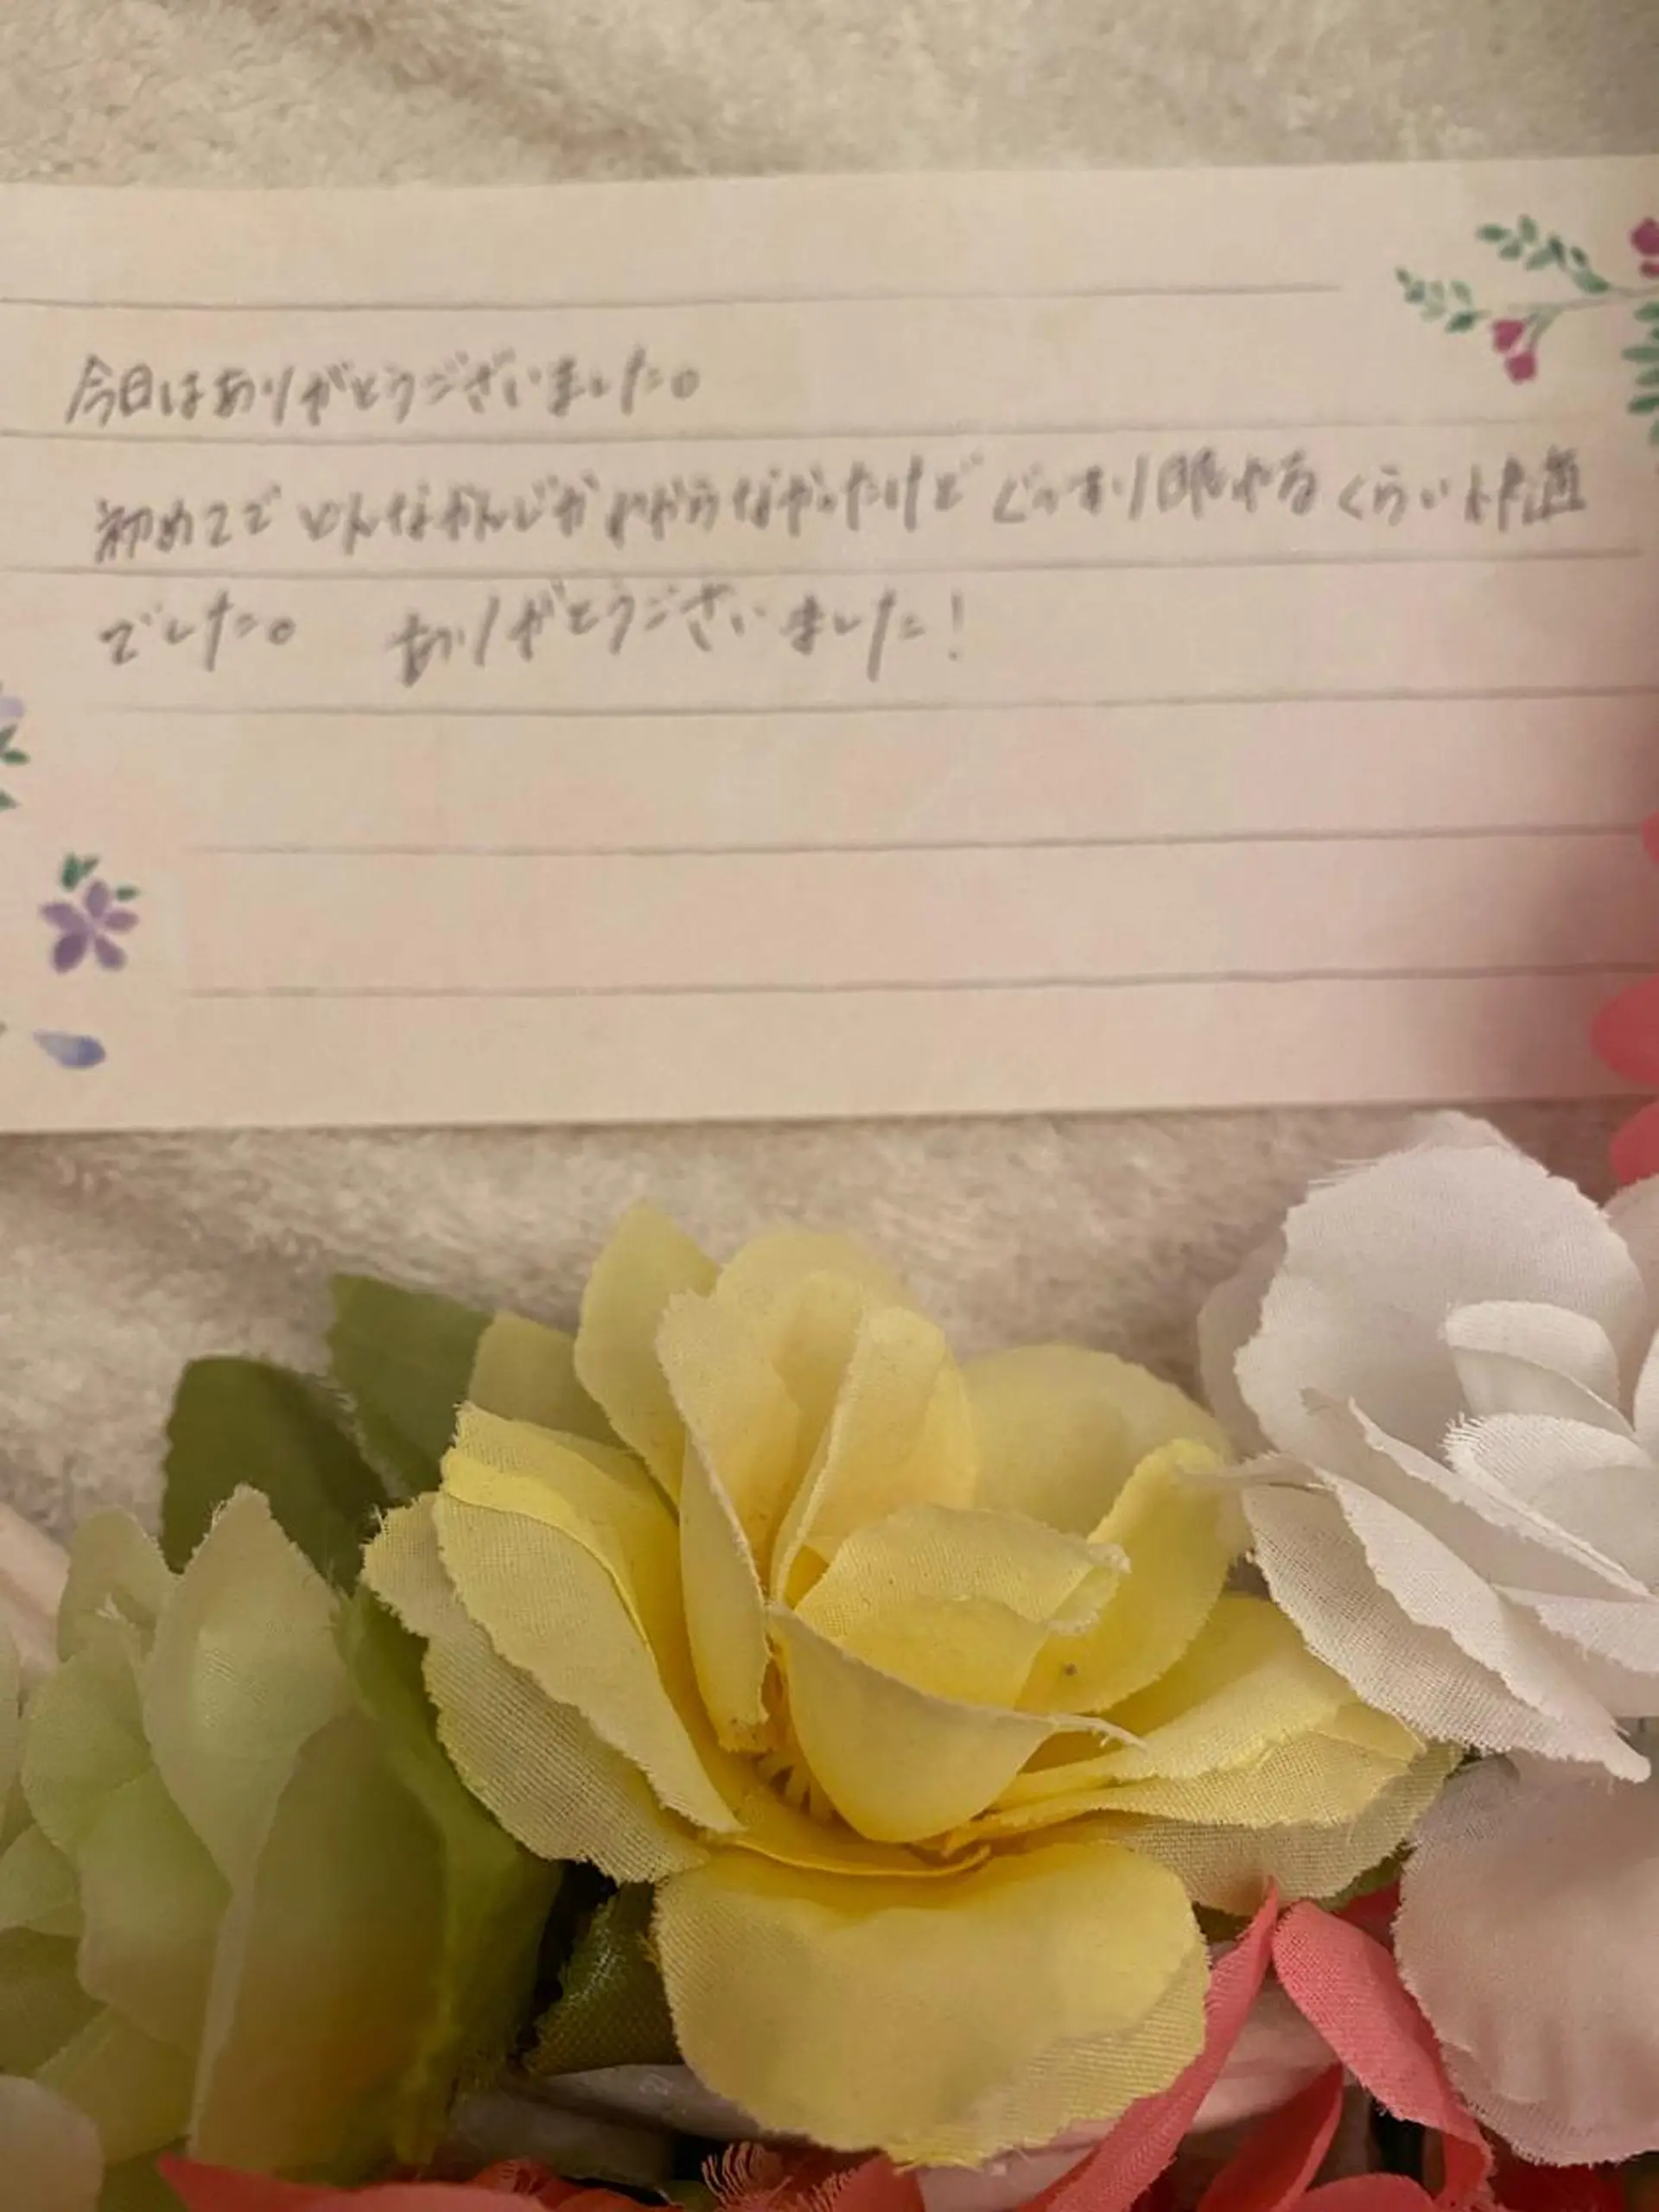 今日はありがとうございました。
初めてでどんなかんじかわからなかったけどぐっすり眠れるくらい快適
でした。 ありがとうございました!